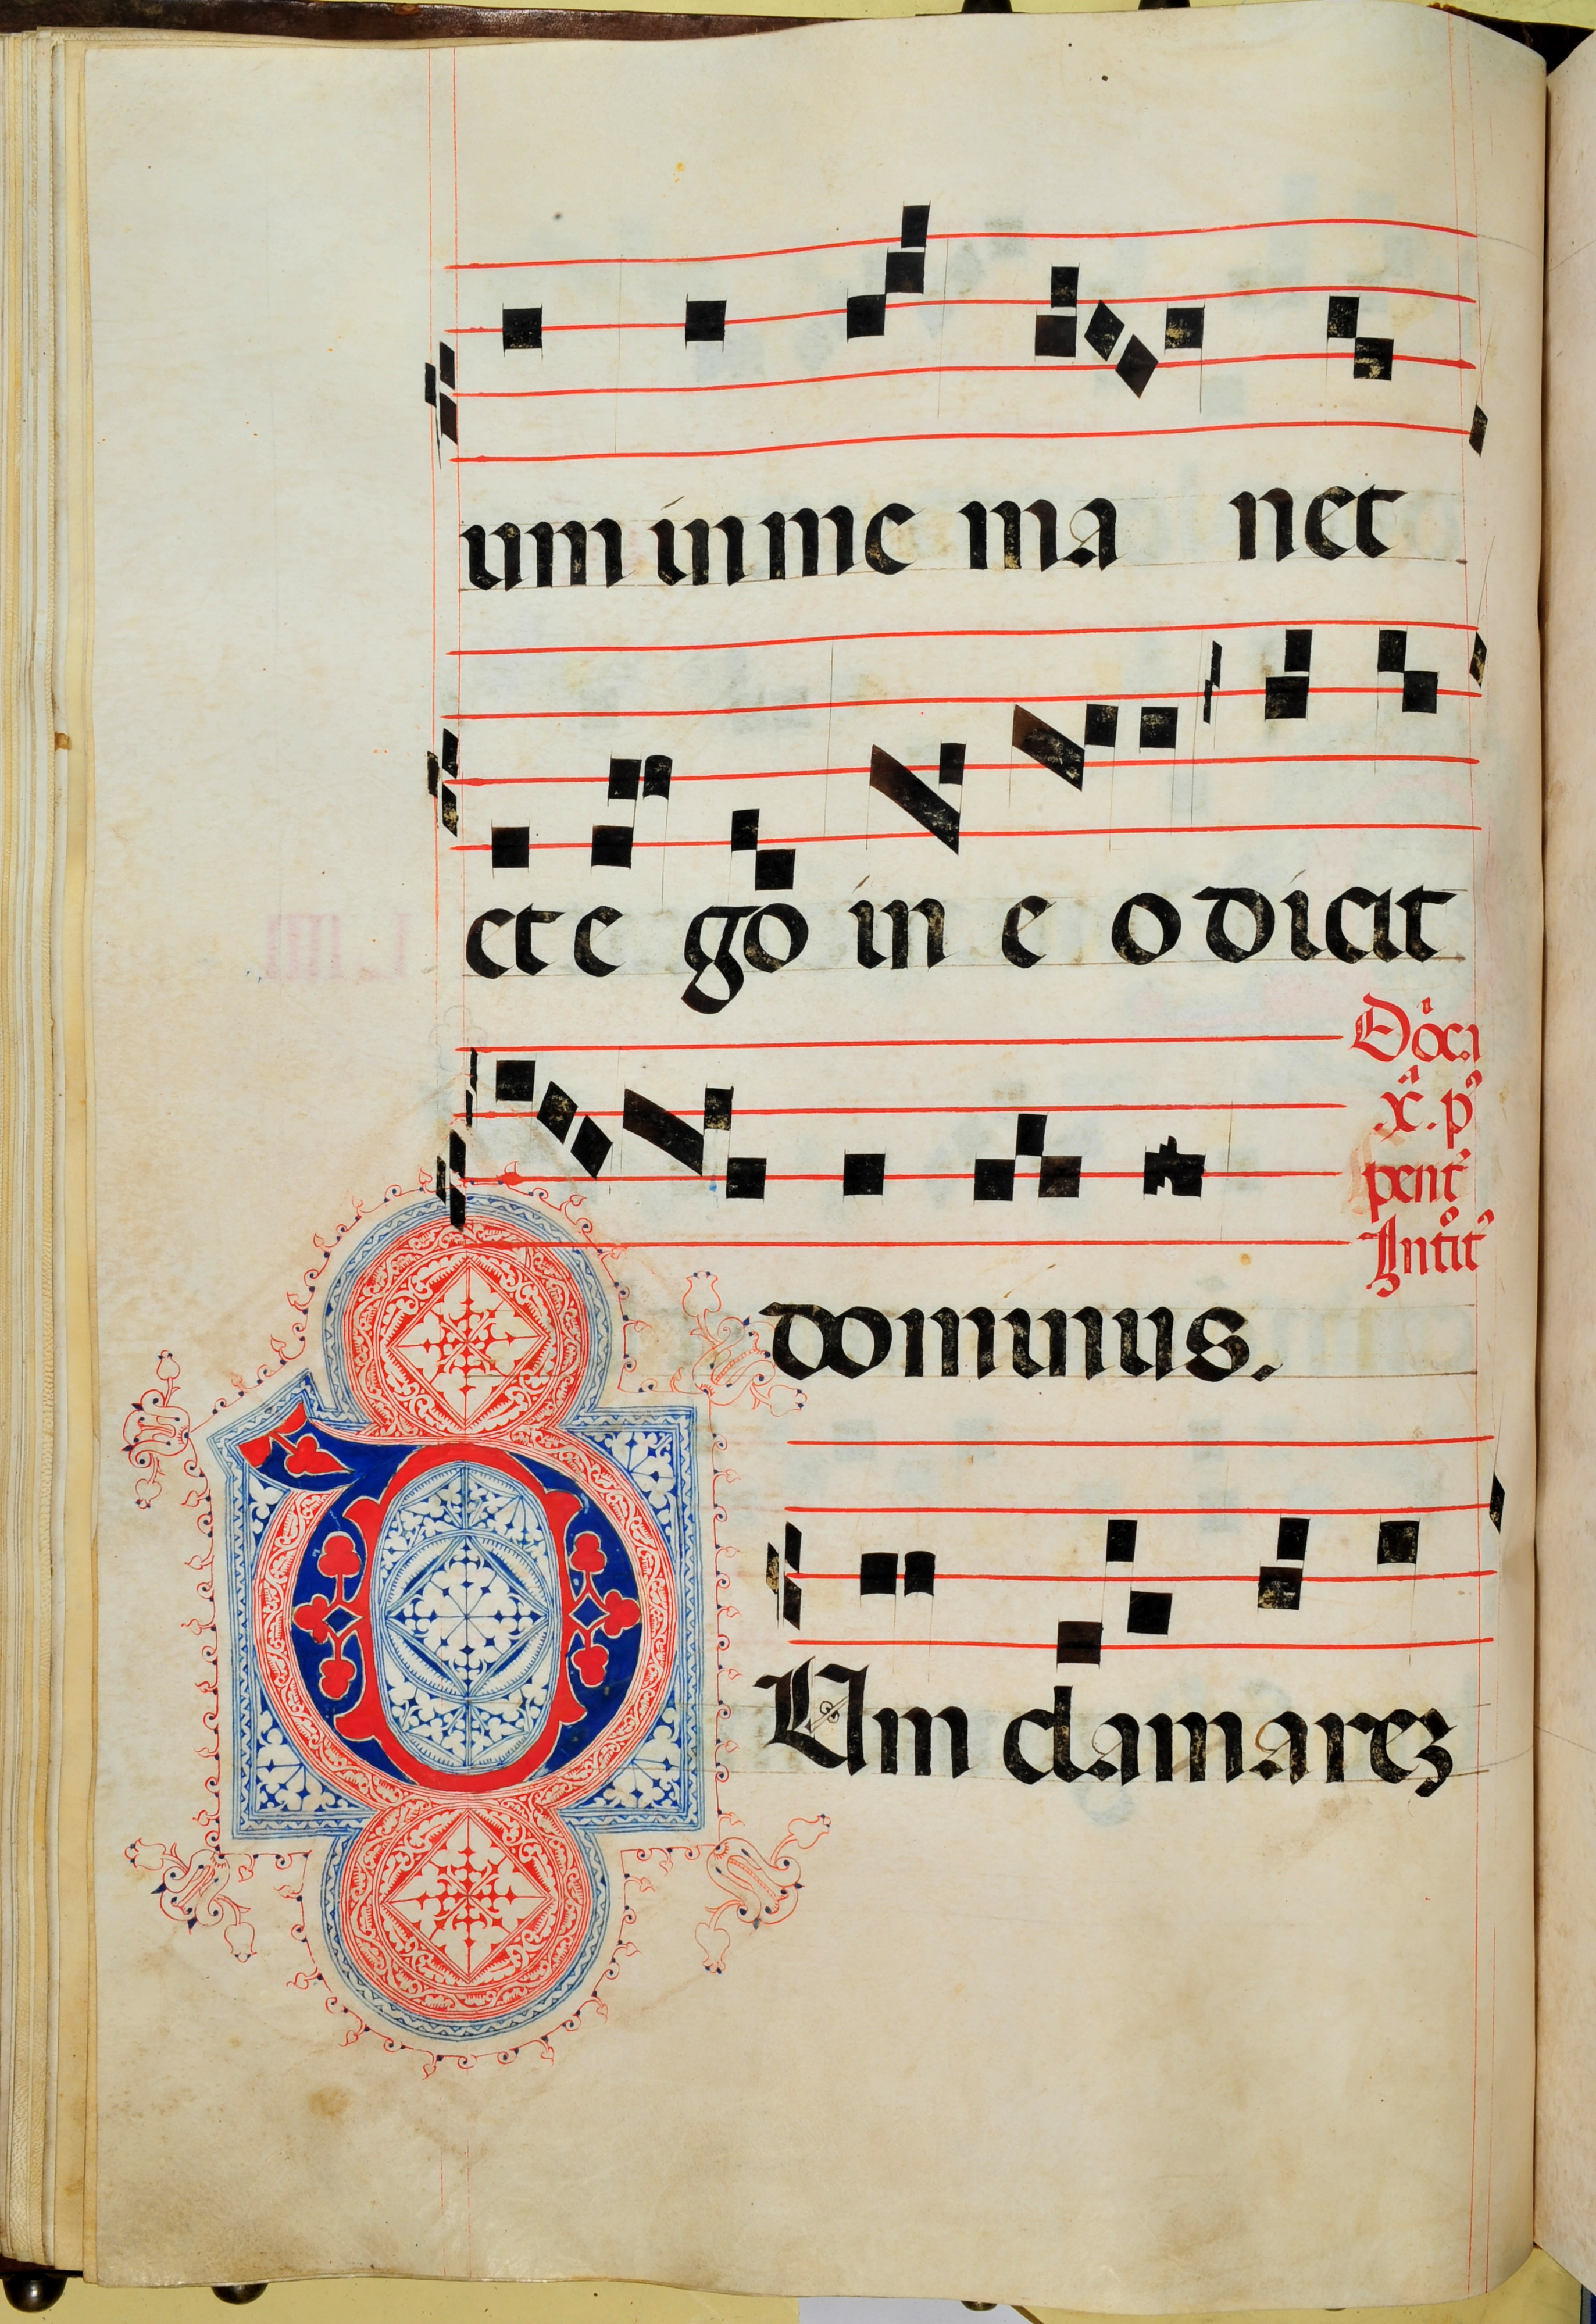 um in me ma net
et e go in e o dicit
Dñica
x̄. p᾿
pent᾿
Introit᾿
dominus.
DUm clamareʒ